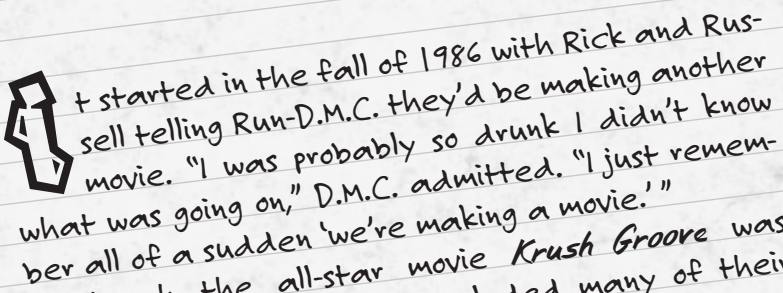 It started in the fall of 1986 with Rick and Rus-
sell telling Run-D.M.C. they'd be making another
movie. "I was probably so drunk I didn't know
what was going on," D.M.C. admitted. "I just remem-
ber all of a sudden 'we're making a movie.' "
the all-star movie Krush Groove was
many of their